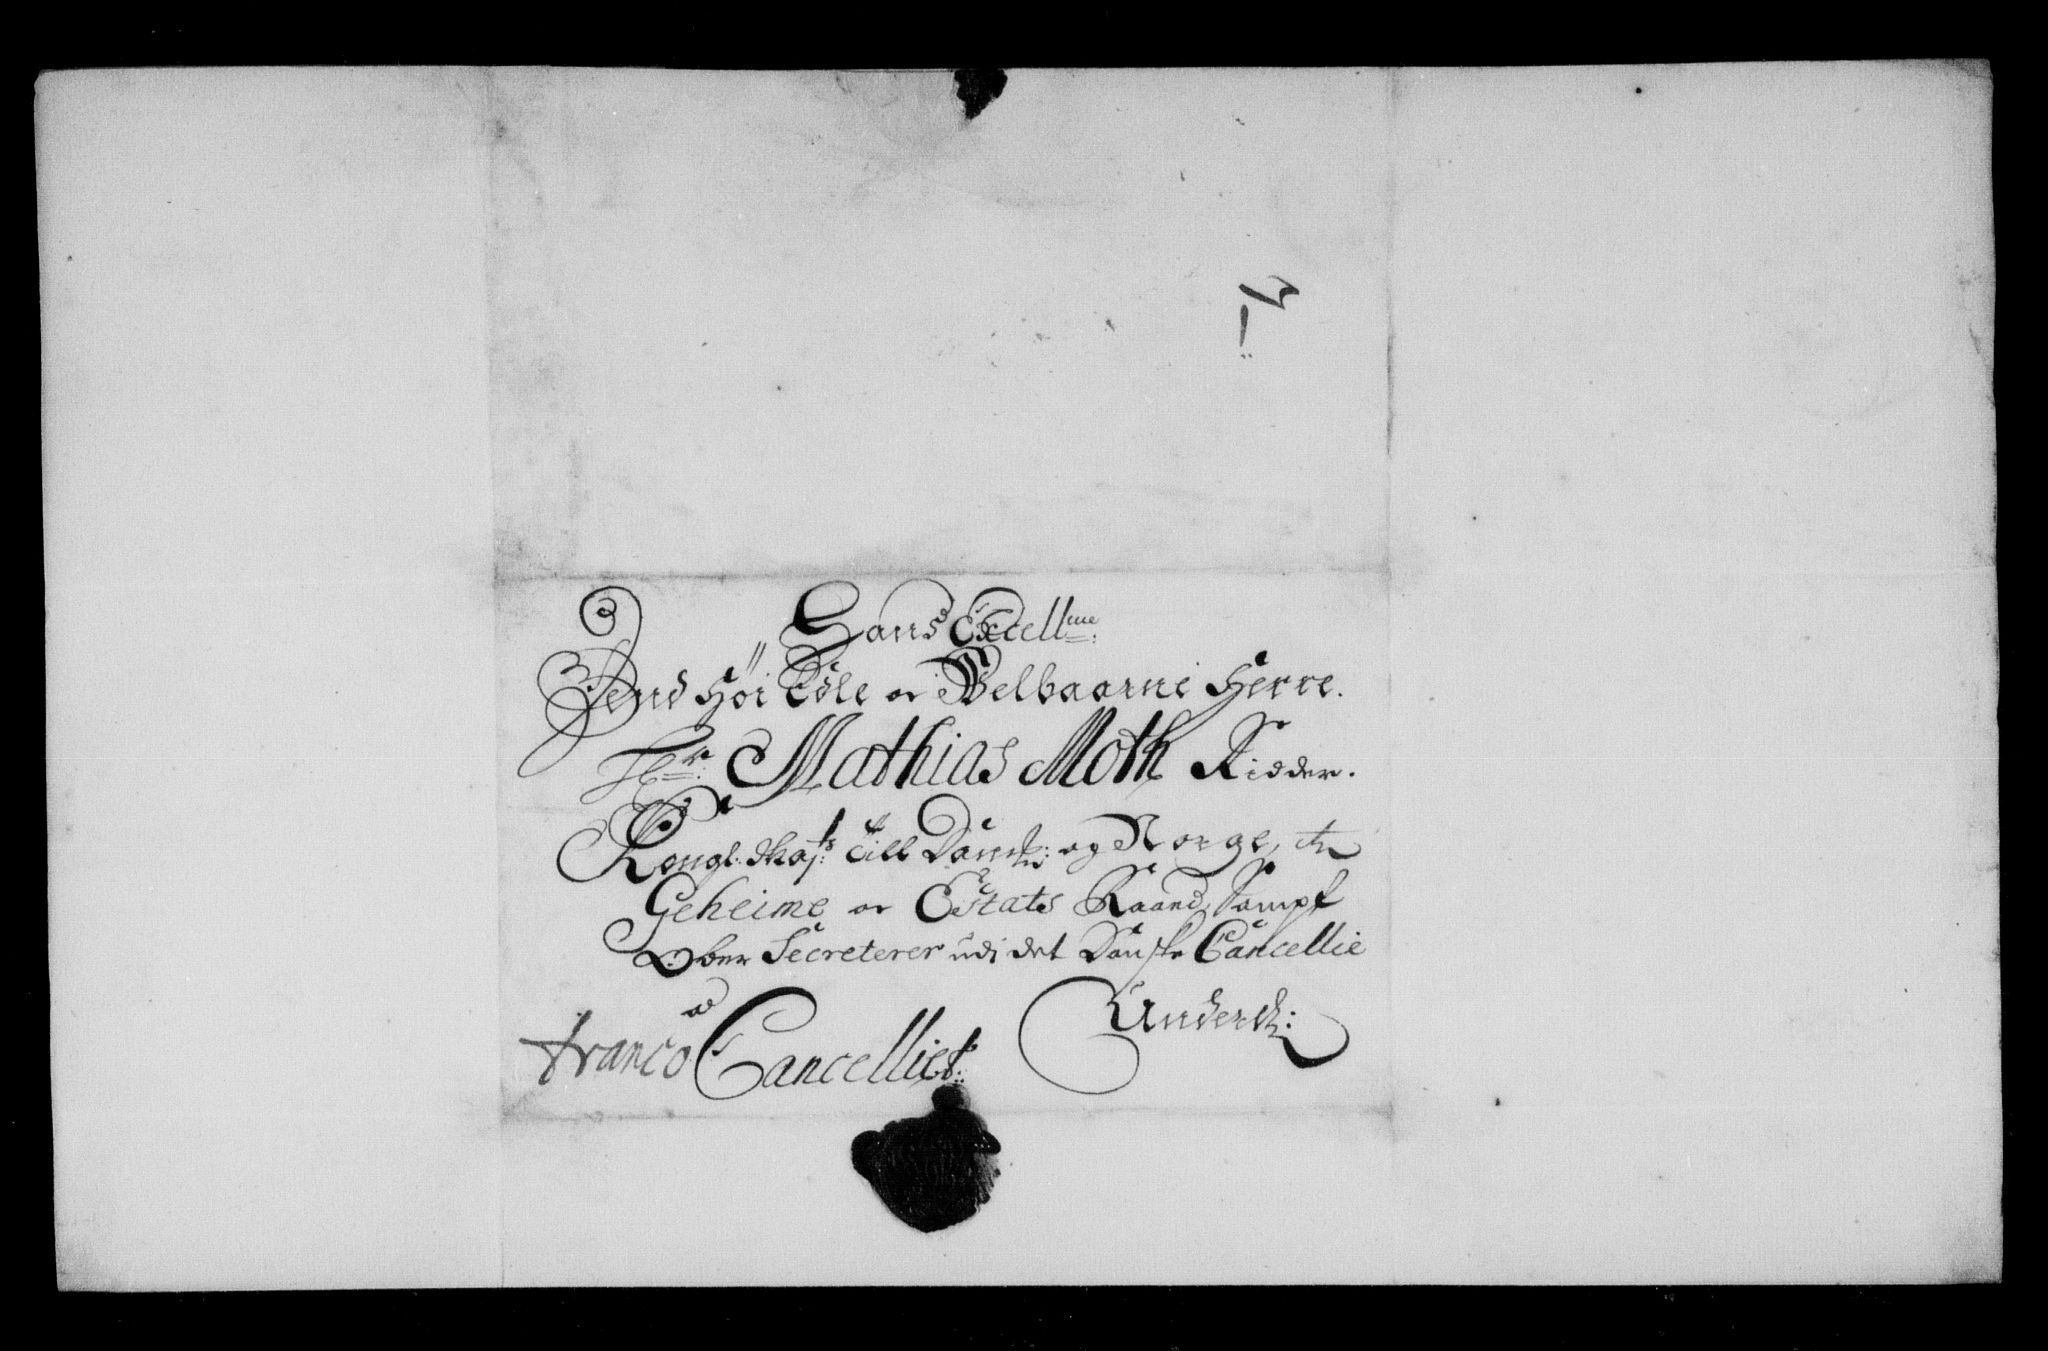 Hans Excell:
Dend Høi Edle oc Velbaarne Herre.
Hr: Mathias Moth Ridder.
Kongl: Mayts: till Danm: og Norge, etc
Geheime oc Estats Raand, Sampt
Ober Secreterer udi det Danske Cancellie
Underd:
franco a Cancelliet: